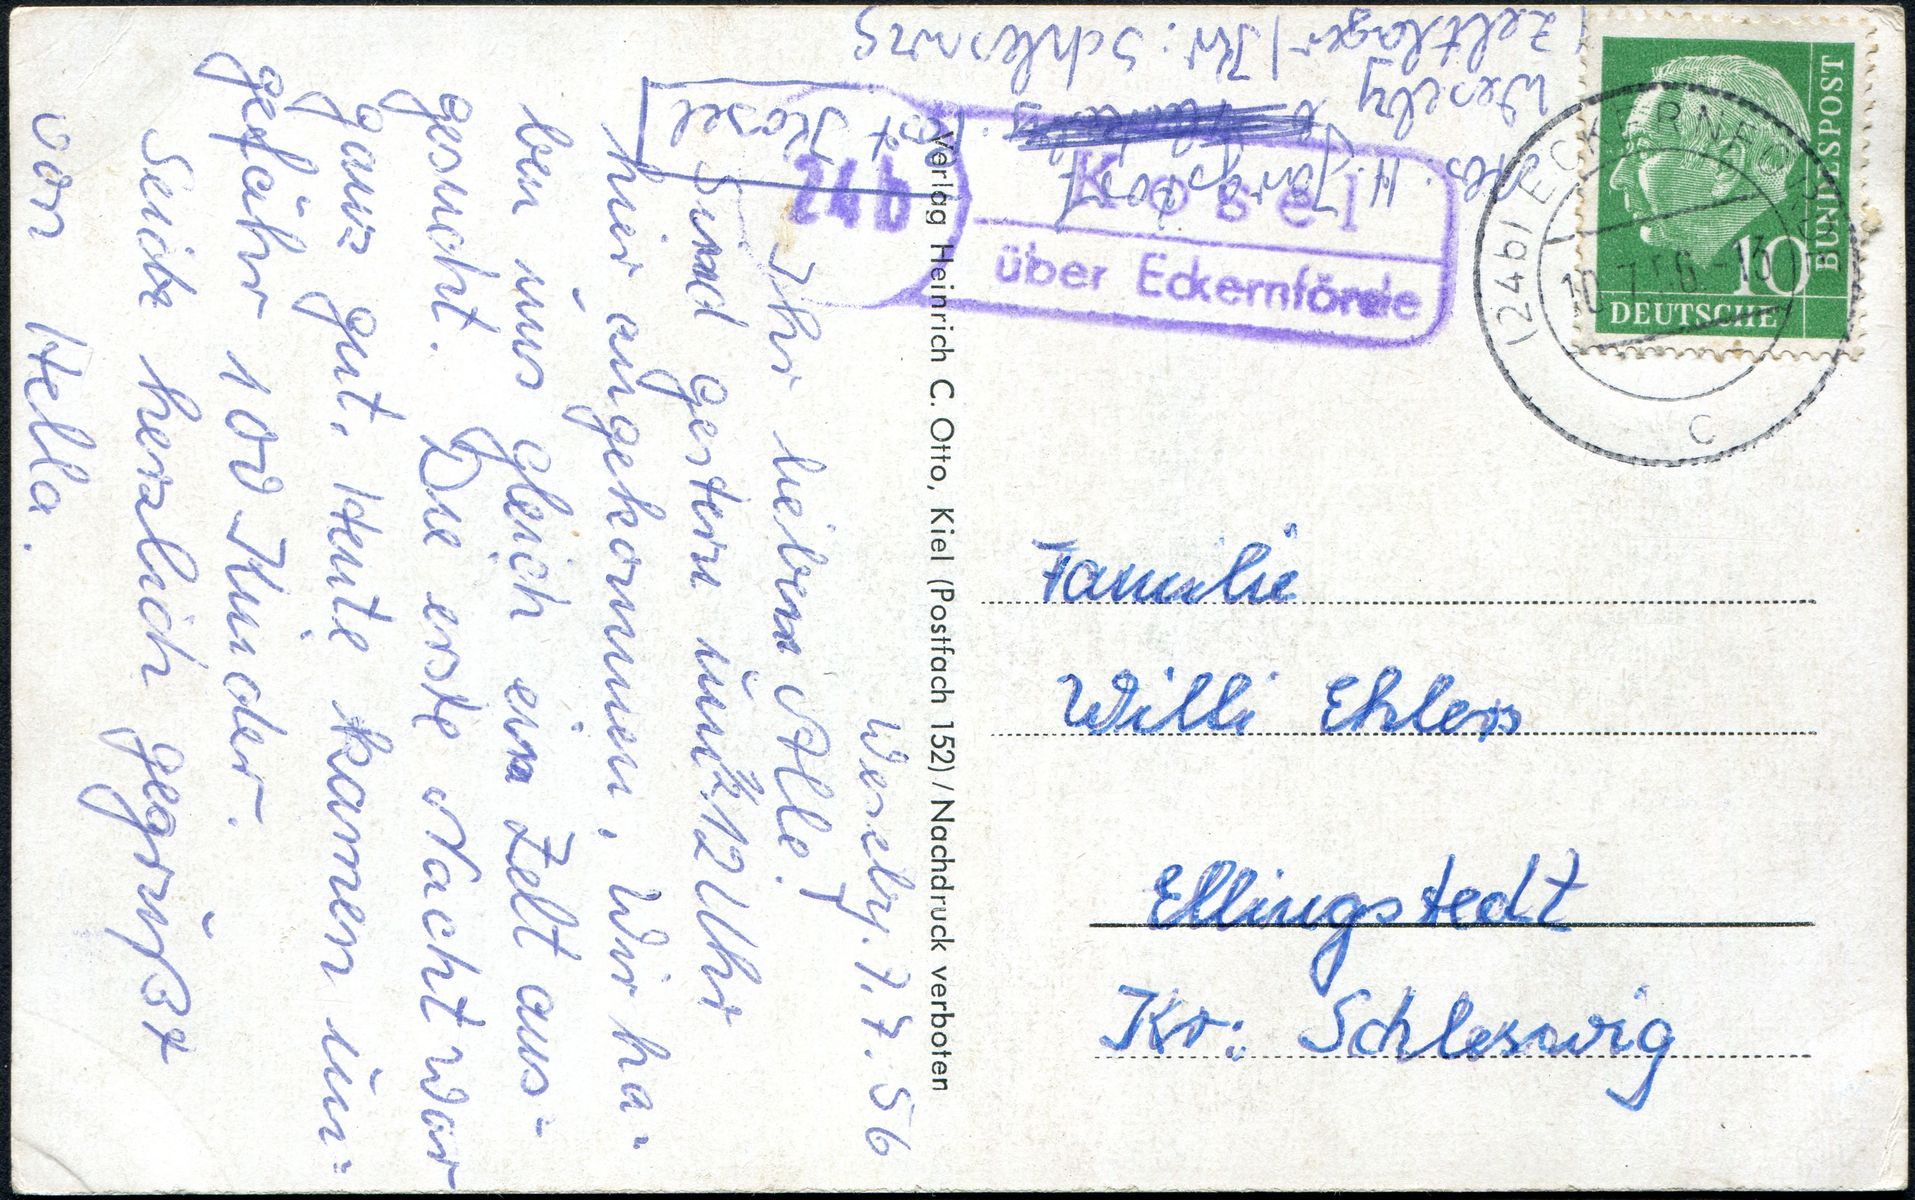 Weseby. 7.7.56
Ihr lieben Alle!
Sind gestern um ½12 Uhr
hier angekommen, Wir ha-
ben uns gleich ein Zelt aus-
gesucht. Die erste Nacht war
ganz gut. Heute kamen un-
gefähr 100 Kinder.
Seid herzlich gegrüßt
von Hella.
Verlag Heinrich C. Otto, Kiel (Postfach 152) / Nachdruck verboten
Abs. H. Jöns
Weseby
Post Kosel
(Zeltlager) Kr: Schleswig
24b
Kosel
über Eckernförde
(24b) ECKERNFÖRDE
10.7.56.-13
c
DEUTSCHE
BUNDESPOST
10
Familie
Willi Ehlers
Ellingstedt
Kr: Schleswig